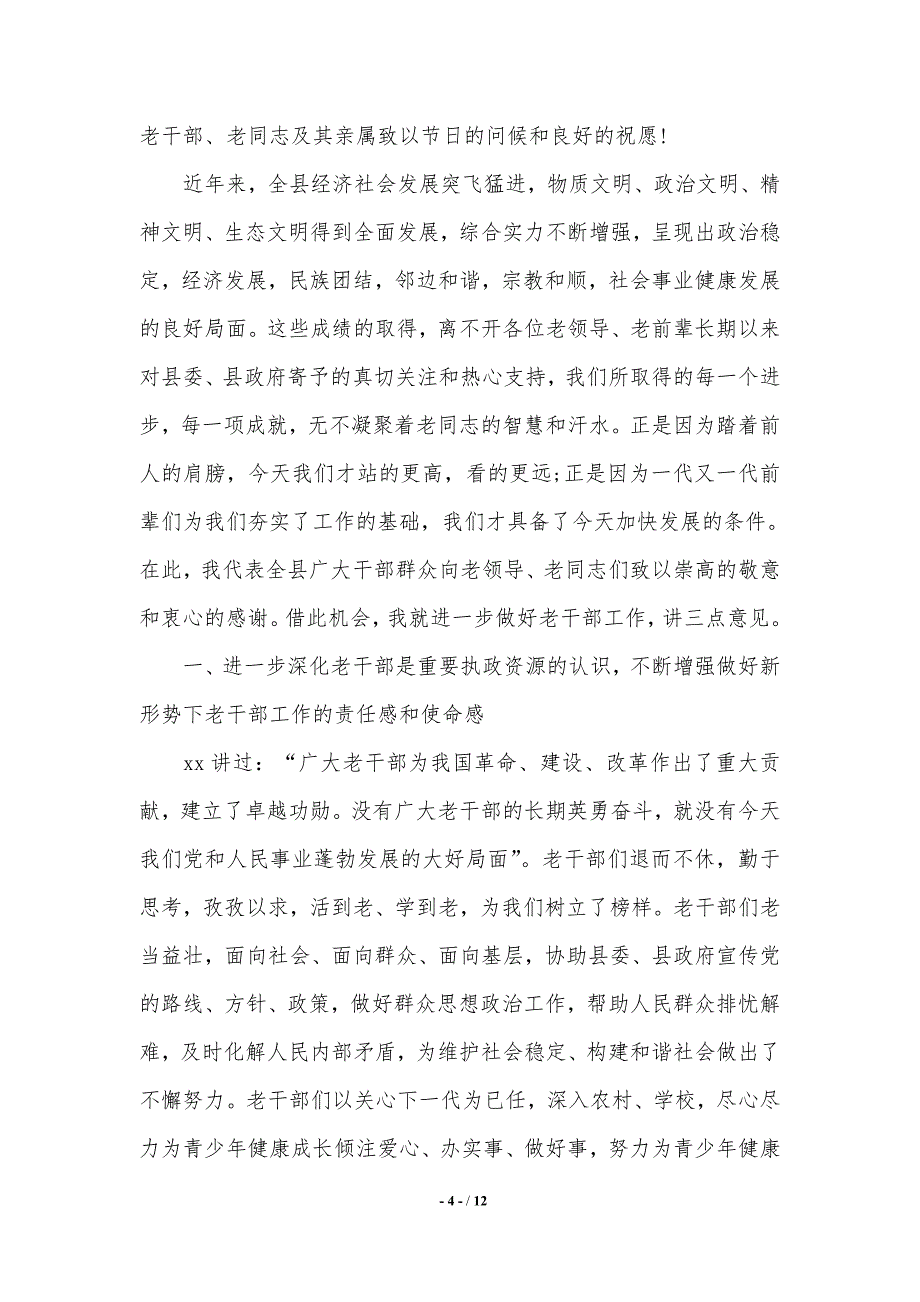 老干部、老同志及其亲属致以节日的问候和良好的祝愿!
近年来，全县经济社会发展突飞猛进，物质文明、政治文明、精
神文明、生态文明得到全面发展，综合实力不断增强，呈现出政治稳
定，经济发展，民族团结，邻边和谐，宗教和顺，社会事业健康发展
的良好局面。这些成绩的取得，离不开各位老领导、老前辈长期以来
对县委、县政府寄予的真切关注和热心支持，我们所取得的每一个进
步，每一项成就，无不凝聚着老同志的智慧和汗水。正是因为踏着前
人的肩膀，今天我们才站的更高，看的更远;正是因为一代又一代前
辈们为我们夯实了工作的基础，我们才具备了今天加快发展的条件。
在此，我代表全县广大干部群众向老领导、老同志们致以崇高的敬意
和衷心的感谢。借此机会，我就进一步做好老干部工作，讲三点意见。
一、进一步深化老干部是重要执政资源的认识，不断增强做好新
形势下老干部工作的责任感和使命感
xx 讲过：“广大老干部为我国革命、建设、改革作出了重大贡
献，建立了卓越功勋。没有广大老干部的长期英勇奋斗，就没有今天
我们党和人民事业蓬勃发展的大好局面”。老干部们退而不休，勤于
思考，孜孜以求，活到老、学到老，为我们树立了榜样。老干部们老
当益壮，面向社会、面向群众、面向基层，协助县委、县政府宣传党
的路线、方针、政策，做好群众思想政治工作，帮助人民群众排忧解
难，及时化解人民内部矛盾，为维护社会稳定、构建和谐社会做出了
不懈努力。老干部们以关心下一代为已任，深入农村、学校，尽心尽
力为青少年健康成长倾注爱心、办实事、做好事，努力为青少年健康
- 4 - / 12